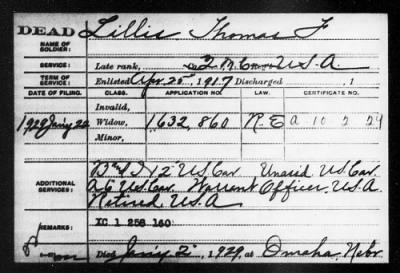 DEAD Lillis Thomas F
NAME OF SOLDIER:
SERVICE: Late rank, Q.M.C. U.S.A
TERM OF SERVICE: Enlisted Apr. 25, 1917 Discharged , 1
DATE OF FILING. CLASS. APPLICATION NO. LAW. CERTIFICATE NO.
Invalid,
1929 Jan'y 22 Widow, 1,632,860 R.E A 10 2 29
Minor,
ADDITIONAL SERVICES: Band I 12" U.S.Cav. Unasgd U.S.Cav.
A.G. U.S.Cav. Warrant Officer, U.S.A.
Retired U.S.A
REMARKS: XC 1 256 160
Died Jan'y 2, 1929, at Omaha, Nebr.